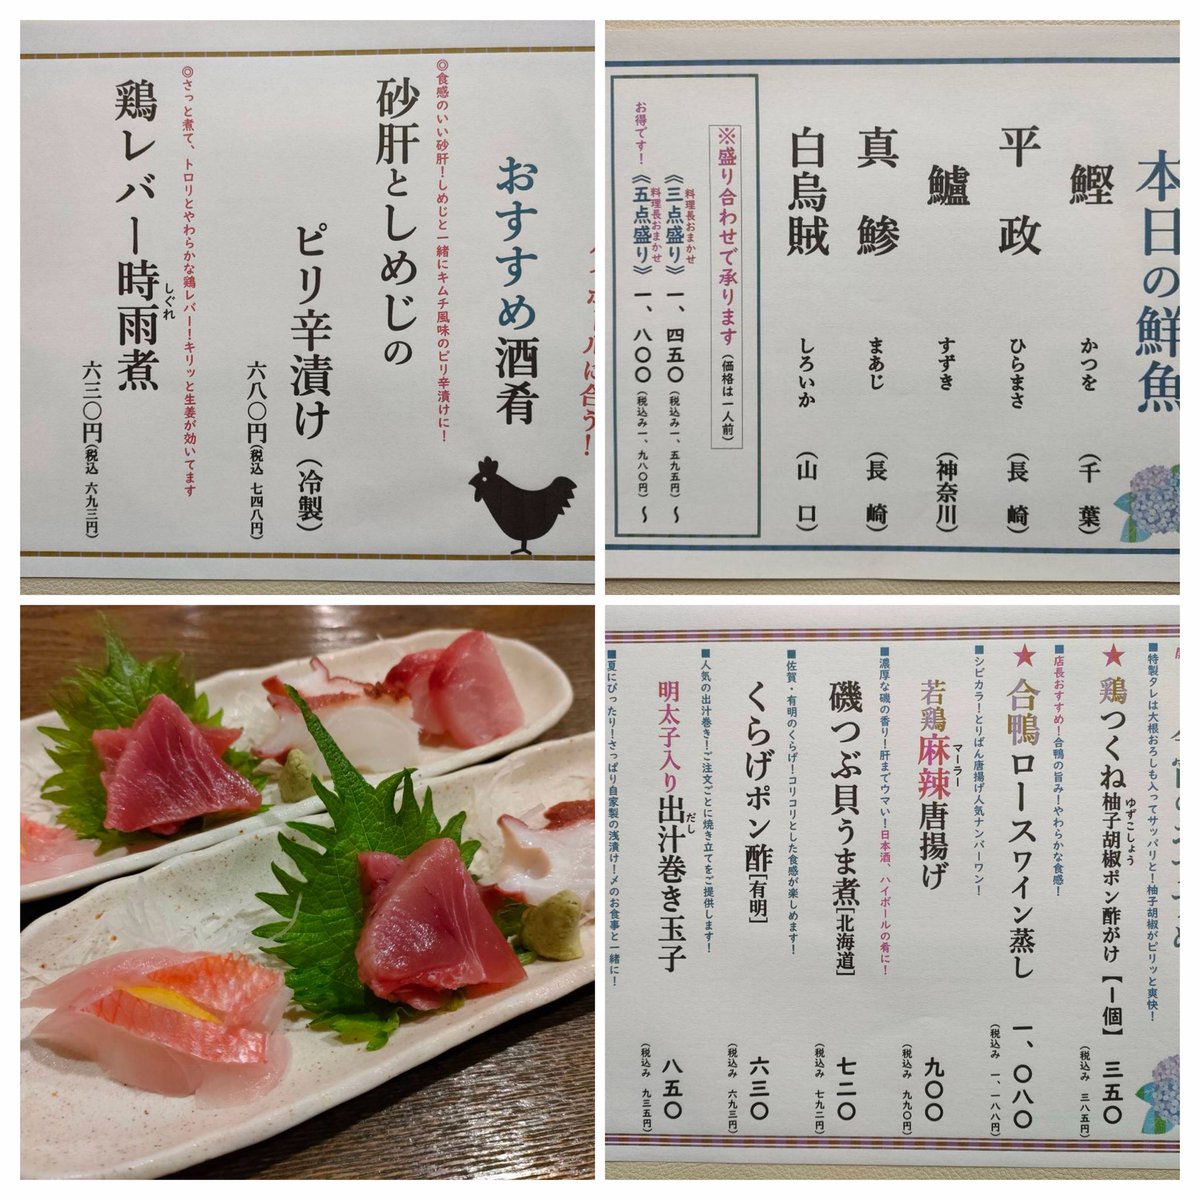 ハイボールは合う！
おすすめ酒肴
◎食感のいい砂肝！しめじと一緒にキムチ風味のピリ辛漬けに！
砂肝としめじの
ピリ辛漬け（冷製）
六八〇円（税込 七四八円）
◎さっと煮て、トロリとやわらかな鶏レバー！キリッと生姜が効いてます
鶏レバー時雨煮
しぐれ
六三〇円（税込 六九三円）
本日の鮮魚
鰹 かつを （千葉）
平政 ひらまさ （長崎）
鱸 すずき （神奈川）
真鯵 まあじ （長崎）
白烏賊 しろいか （山口）
※盛り合わせで承ります（価格は一人前）
料理長おまかせ
《三点盛り》 一、四五〇（税込み一、五九五円）〜
料理長おまかせ
お得です！《五点盛り》 一、八〇〇（税込み一、九八〇円）〜
■特製タレは大根おろしも入ってサッパリと！柚子胡椒がピリッと爽快！
★鶏つくね柚子胡椒ポン酢がけ【一個】 三五〇
ゆずこしょう
（税込み 三八五円）
■店長おすすめ！合鴨の旨み！やわらかな食感！
★合鴨ロースワイン蒸し 一、〇八〇
（税込み 一、一八八円）
■シビカラ！とりぱん唐揚げ人気ナンバーワン！
若鶏麻辣唐揚げ 九〇〇
マーラー
（税込み 九九〇円）
■濃厚な磯の香り！肝までウマい！日本酒、ハイボールの肴に！
磯つぶ貝うま煮[北海道] 七二〇
（税込み 七九二円）
■佐賀・有明のくらげ！コリコリとした食感が楽しめます！
くらげポン酢[有明] 六三〇
（税込み 六九三円）
■人気の出汁巻き！ご注文ごとに焼き立てをご提供します！
明太子入り出汁巻き玉子 八五〇
だし
（税込み 九三五円）
■夏にぴったり！さっぱり自家製の浅漬け！〆のお食事と一緒に！